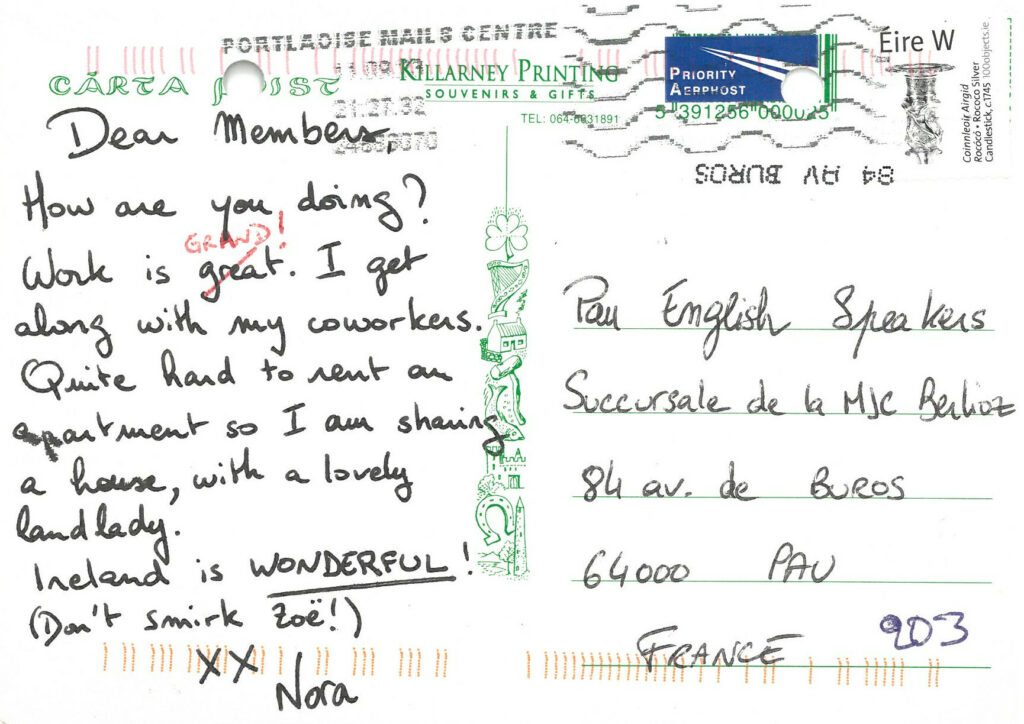 PORTLAOISE MAILS CENTRE
21:27:32
24683070
CÁRTA POIST
KILLARNEY PRINTING
SOUVENIRS & GIFTS
TEL: 064-6631891
PRIORITY
AERPHOST
5 391256 000025
Éire W
Coinnleoir Airgid
Rococó • Rococo Silver
Candlestick, c1745
100objects.ie
84 AV BUROS
Dear Members,
How are you doing?
GRAND!
Work is great. I get
along with my coworkers.
Quite hard to rent an
apartment so I am sharing
a house, with a lovely
landlady.
Ireland is WONDERFUL!
(Don't smirk Zoë!)
XX
Nora
Pau English Speakers
Succursale de la MJC Berlioz
84 av. de BUROS
64000 PAU
FRANCE
903